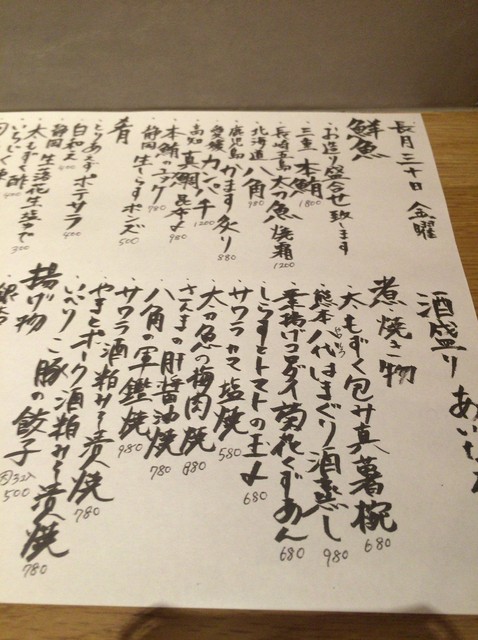 酒盛り あいうえ
長月三十日 金曜
鮮魚
お造り盛合せ致します
三重 本鮪 1800
長崎五島 太刀魚焼霜 1200
北海道 八角 980
鹿児島 かます炙り 880
愛媛 カンパチ 1200
高知 真鯛昆布〆 980
本鮪のユッケ 780
静岡 生しらすポンズ 500
肴
とりあえずポテサラ 400
白和え 400
静岡 生落花生塩ゆで
太もずく酢 300
いちじく
煮焼き物
太もずく包み真薯椀 680
熊本八代はまぐり酒蒸し 980
菊花くずあん 680
しらすとトマトの玉〆 680
サワラカマ塩焼 580
太刀魚の梅肉焼 880
さんまの肝醤油焼 780
八角の軍艦焼 980
サワラ酒粕みそ漬焼
やまとポーク酒粕みそ漬焼 780
780
揚げ物
豚の餃子 500
銀杏